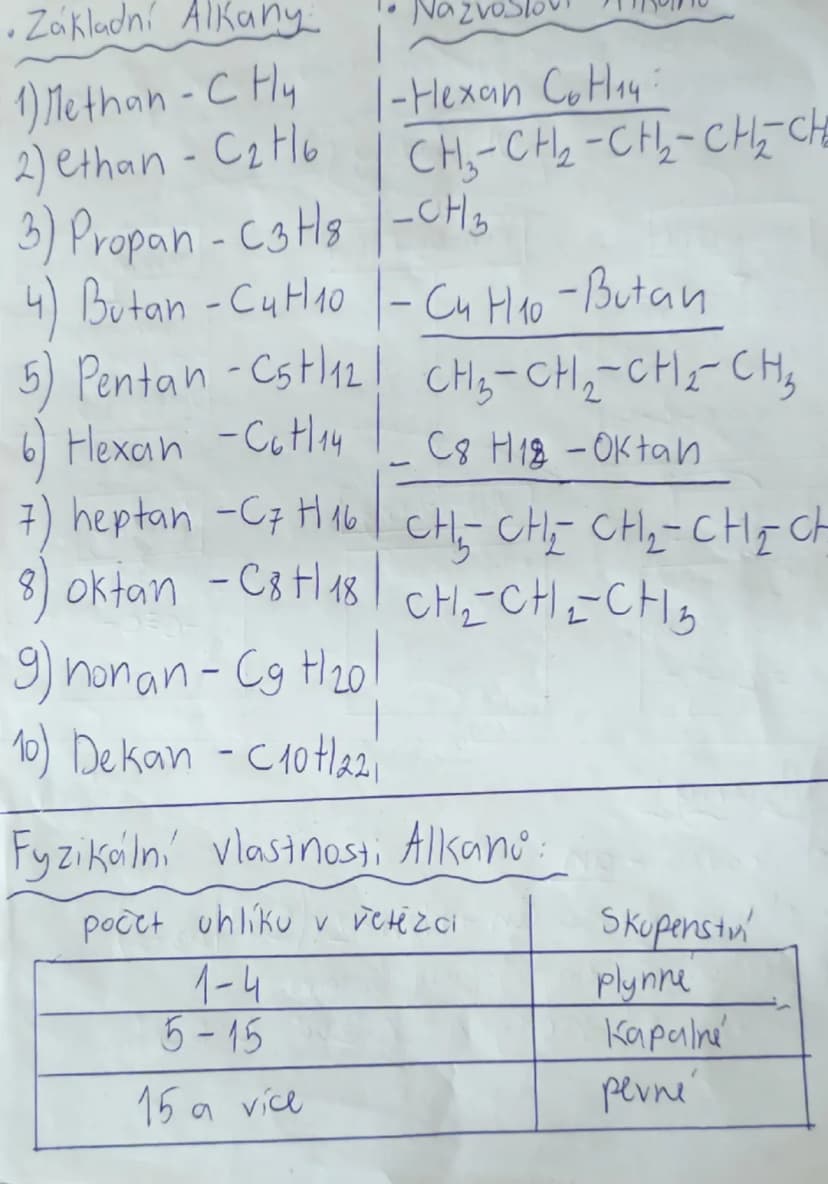 • Základní Alkany:
1) Methan - CH4
2) ethan - C2H6
3) Propan - C3H8
4) Butan - C4H10
5) Pentan - C5H12
6) Hexan - C6H14
7) heptan - C7H16
8) oktan - C8H18
9) nonan - C9H20
10) Dekan - C10H22
• Názvosloví
- Hexan C6H14:
CH3-CH2-CH2-CH2-CH
-CH3
- C4H10 - Butan
CH3-CH2-CH2-CH3
- C8H18 - Oktan
CH3-CH2-CH2-CH2-CH
CH2-CH2-CH3
Fyzikální vlastnosti Alkanů:
počet uhlíku v řetězci Skupenství
1-4 plynné
5-15 Kapalné
15 a více pevné